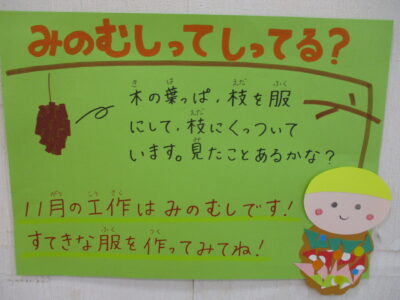 みのむしってしってる?
木の葉っぱ、枝を服
にして、枝にくっついて
います。見たことあるかな?
11月の工作はみのむしです!
すてきな服を作ってみてね!